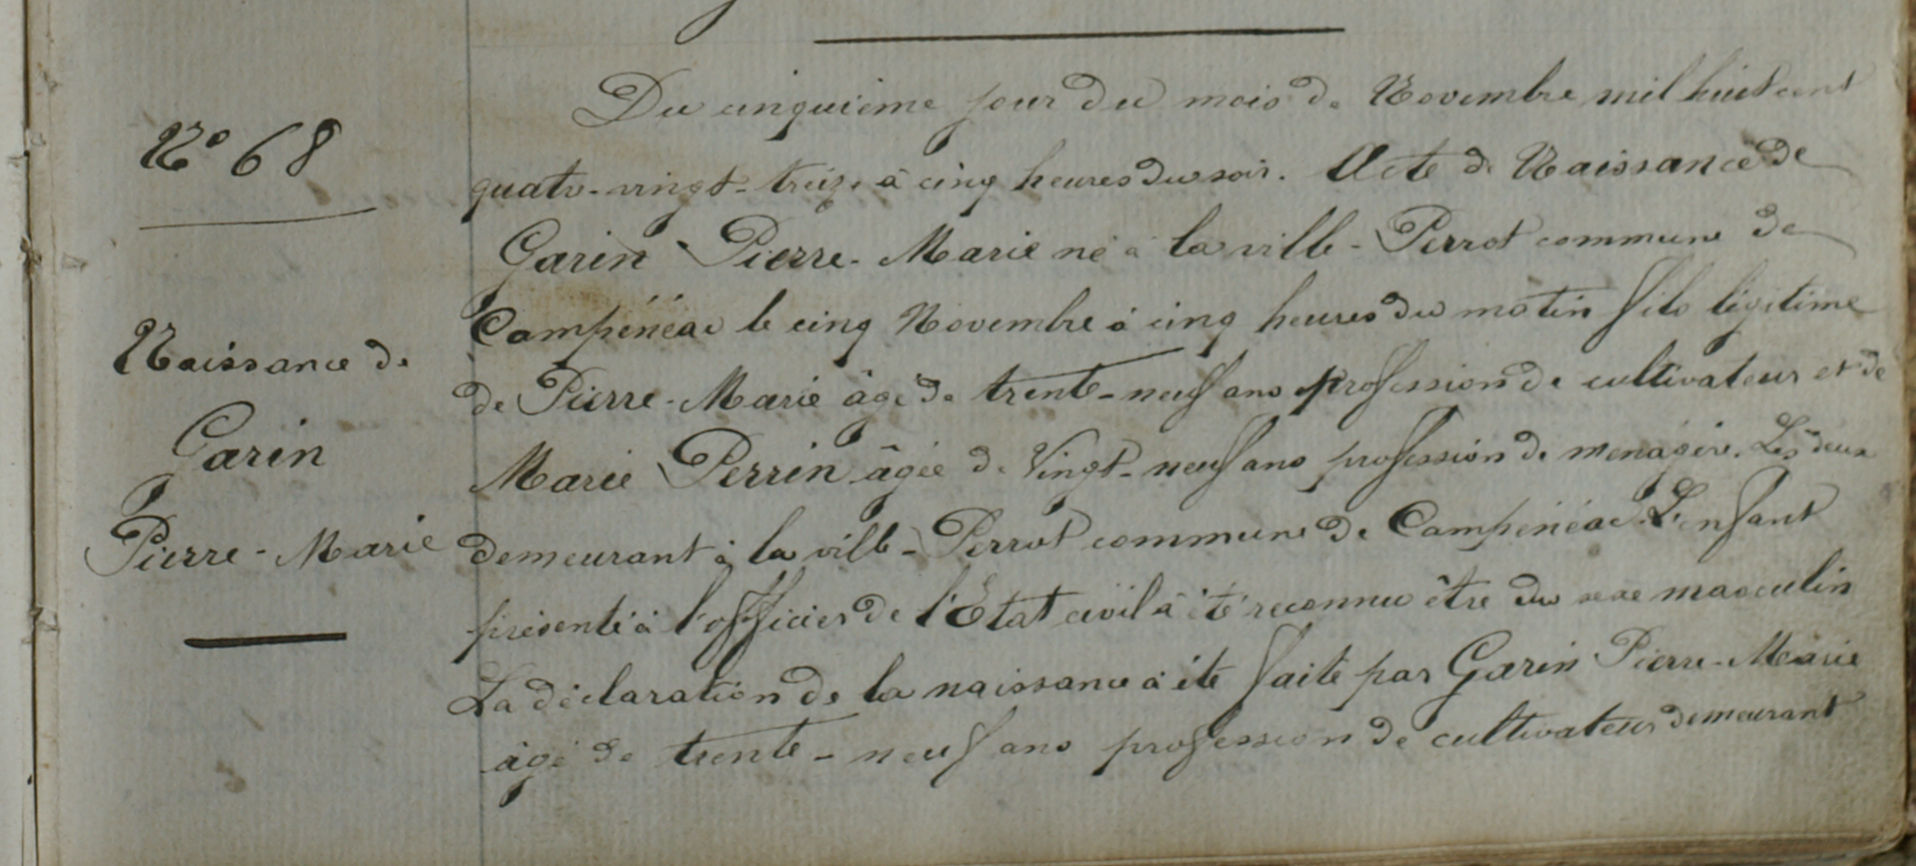 N° 68
Naissance de
Garin
Pierre-Marie
Du cinquième jour du mois de Novembre mil huit cent
quatre-vingt-treize à cinq heures du soir. Acte de Naissance de
Garin Pierre-Marie né à la ville-Perrot commune de
Campénéac le cinq Novembre à cinq heures du matin fils légitime
de Pierre-Marie âgé de trente-neuf ans profession de cultivateur et de
Marie Perrin âgée de Vingt-neuf ans profession de menagère. Les deux
demeurant à la ville-Perrot commune de Campénéac. L'enfant
présenté à l'officier de l'Etat civil à été reconnu être du sexe masculin
La déclaration de la naissance à été faite par Garin Pierre-Marie
âgé de trente-neuf ans profession de cultivateur demeurant